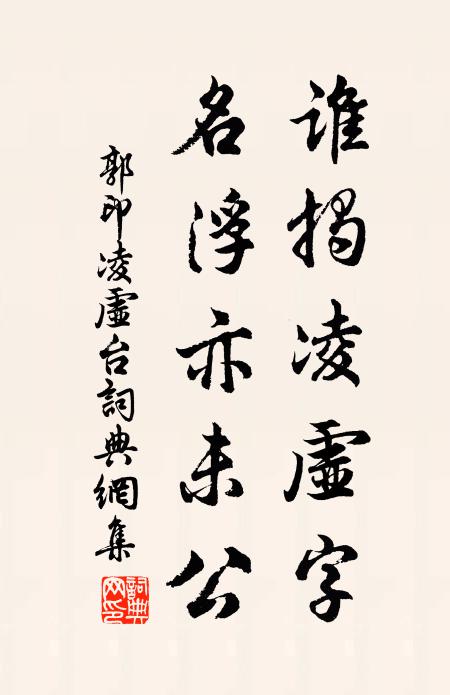 誰揭凌虛字
名浮亦未公
郭印凌虛台詞典網集
詞典網印